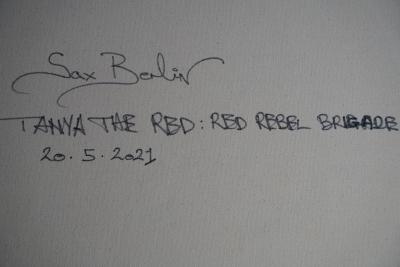 Sax Berlin
TANYA THE RED: RED REBEL BRIGADE
20.5.2021